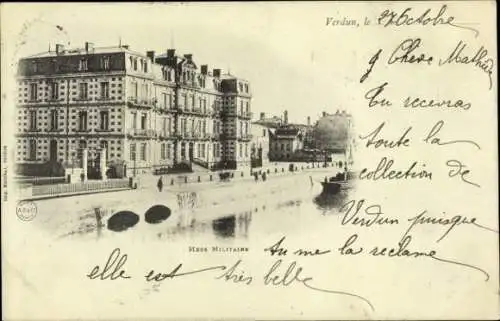 Verdun, le 27 Octobre
Chère Mathilde
Tu recevras
toute la
collection de
Verdun puisque
MESS MILITAIRE
tu me la réclames
elle est très belle